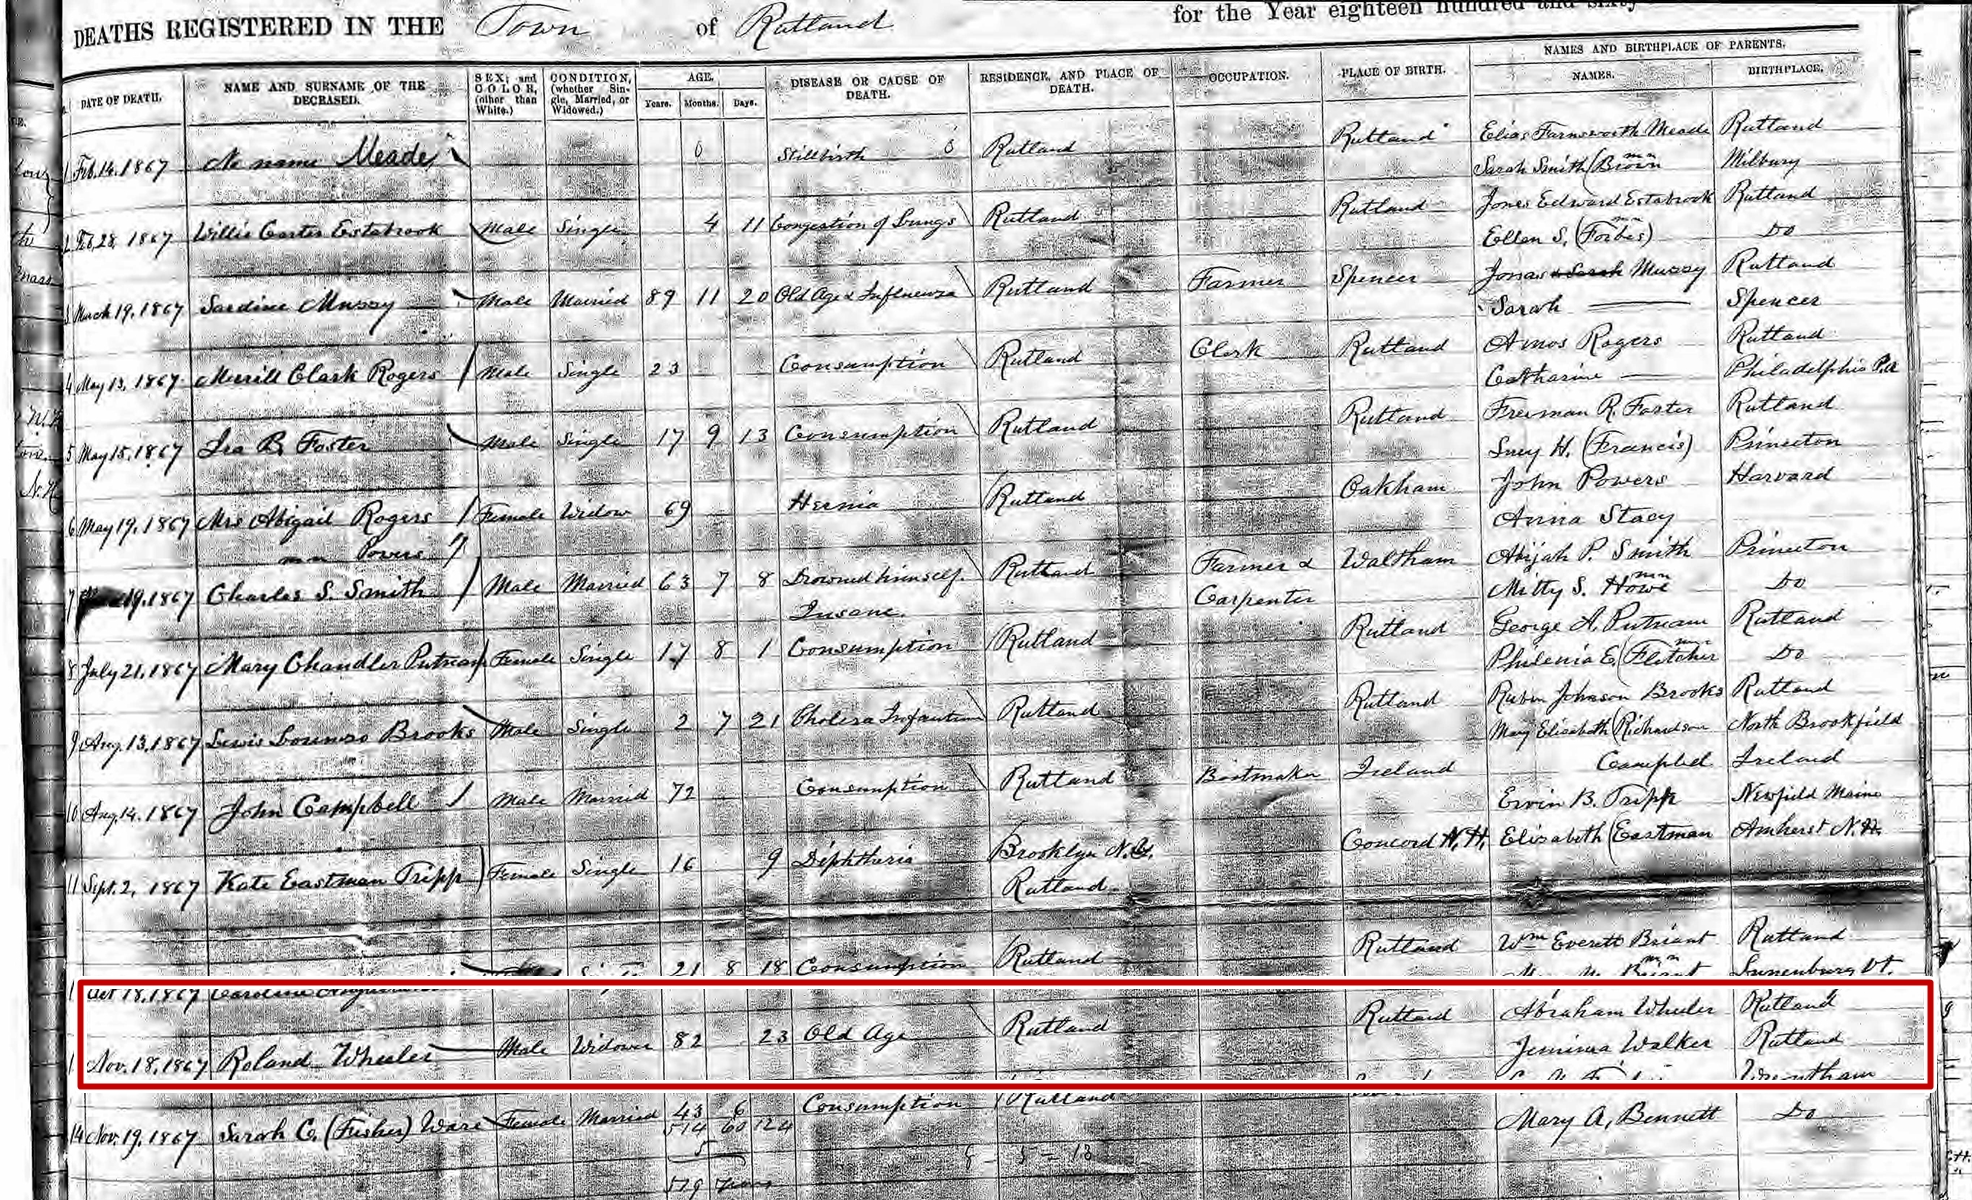 DEATHS REGISTERED IN THE Town of Rutland for the Year eighteen hundred and sixty
DATE OF DEATH. NAME AND SURNAME OF THE DECEASED. SEX; and COLOR, (other than White.) CONDITION, (whether Single, Married, or Widowed.) AGE. Years. Months. Days. DISEASE OR CAUSE OF DEATH. RESIDENCE, AND PLACE OF DEATH. OCCUPATION. PLACE OF BIRTH. NAMES AND BIRTHPLACE OF PARENTS. NAMES. BIRTHPLACE.
1 Feb. 14. 1867 No name Meade 0 Stillbirth 0 Rutland Rutland Elias Farnsworth Meade Rutland
Sarah Smith (Brown Milbury
2 Feb. 28. 1867 Willie Carter Estabrook Male Single 4 11 Congestion of Lungs Rutland Rutland Jones Edward Estabrook Rutland
Ellen S. (Forbes) Do
3 March 19. 1867 Sardine Muzzy Male Married 89 11 20 Old Age & Influenza Rutland Farmer Spencer Jonas & Sarah Muzzy Rutland
Sarah Spencer
4 May 13. 1867 Merrill Clark Rogers Male Single 23 Consumption Rutland Clerk Rutland Amos Rogers Rutland
Catharine Philadelphia Pa
5 May 15. 1867 Ira B. Foster Male Single 17 9 13 Consumption Rutland Rutland Freeman R. Foster Rutland
Lucy H. (Francis) Princeton
6 May 19. 1867 Mrs Abigail Rogers Female Widow 69 Hernia Rutland Oakham John Powers Harvard
mn Powers Anna Stacy
7 19. 1867 Charles S. Smith Male Married 63 7 8 Drowned himself. Rutland Farmer & Waltham Abijah P. Smith Princeton
Insane. Carpenter Mitty S. Howe mn Do
8 July 21, 1867 Mary Chandler Putnam Female Single 17 8 1 Consumption Rutland Rutland George A. Putnam Rutland
Philenia E. (Fletcher Do
9 Aug. 13. 1867 Lewis Lorenzo Brooks Male Single 2 7 21 Cholera Infantum Rutland Rutland Ruben Johnson Brooks Rutland
Mary Elizabeth (Richardson North Brookfield
10 Aug. 14. 1867 John Campbell Male Married 72 Consumption Rutland Bootmaker Ireland Campbel Ireland
11 Sept. 2, 1867 Kate Eastman Tripp Female Single 16 9 Diphtheria Brooklyn N.Y. Concord N.H. Ervin B. Tripp Newfield Maine
Rutland Elizabeth (Eastman Amherst N.H.
Oct 18. 1867 Caroline 21 8 18 Consumption Rutland Rutland Wm Everett Briant Rutland
Briant Lunenburg Vt.
1 Nov. 18. 1867 Roland Wheeler Male Widower 82 23 Old Age Rutland Rutland Abraham Wheeler Rutland
Jemima Walker Rutland
Wrentham
14 Nov. 19, 1867 Sarah C. (Fisher) Ware Female Married 43 6 Consumption Rutland
Mary A, Bennett Do
514 60 124
5 5 - 13
519 Years